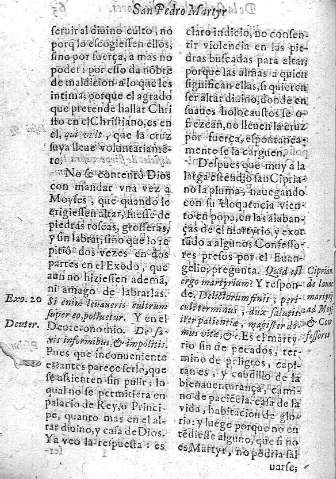 San Pedro Martyr
seruir al diuino culto, no
porq̃ lo escogiessen ellos,
sino por fuerça, a mas no
poder: por esso da nõbre
de maldicion a lo que les
intima, porque el agrado
que pretende hallar Christo
en el Christiano, es en
el, qui vult, que la cruz
suya lleue voluntariamẽte.
No se contentò Dios
con mandar vna vez a
Moyses, que quando le
erigiessen altar, fuesse de
piedras toscas, grosseras,
y sin labrar, sino que lo repitiò
dos vezes en dos
partes en el Exodo, que
aun no hiziessen ademã,
ni amago de labrarlas.
Exo. 20
Si enim leuaueris cultrum
super eo, polluetur. Y en el
Deuter.
Deuteronomio. De saxis
informibus, & impolitis.
Pues que inconueniente
essantes parecerselo, que
se assienten sin pulir: lo
qual no se permitiera en
palacio de Rey, o Principe,
quanto mas en altar
diuino, y casa de Dios.
Ya veo la respuesta: es
claro indicio, no consentir
violencia en las piedras
buscadas para altar,
porque las almas a quien
significan ellas, si quieren
ser altar diuino, donde en
suaues holocaustos se ofrezcan,
no lleuen la cruz
por fuerça, espontaneamente
se la carguen.
Despues que muy a la
larga estendiò san Cipriano
la pluma, nauegando
con su eloquencia viento
en popa, en las alabanças
de el martyrio, y exortado
a algunos Confessores
presos por el Euangelio,
pregunta. Quid est
ergo martyrium? Y responde.
Delictorum finis, periculi
terminus, dux salutis,
iter patientiæ, magister domus
vitæ, &c. Es el martyrio
sin de pecados, termino
de peligros, capitanes,
y caudillo de la
bienauenturança, camino
de paciẽcia, casa de la
vida, habitacion de gloria:
y luego porque no entẽdiesse
alguno, que si no
es Martyr, no podria saluarse,
Ciprian.
de laude
martyrij
ad Moy.
& Confessores